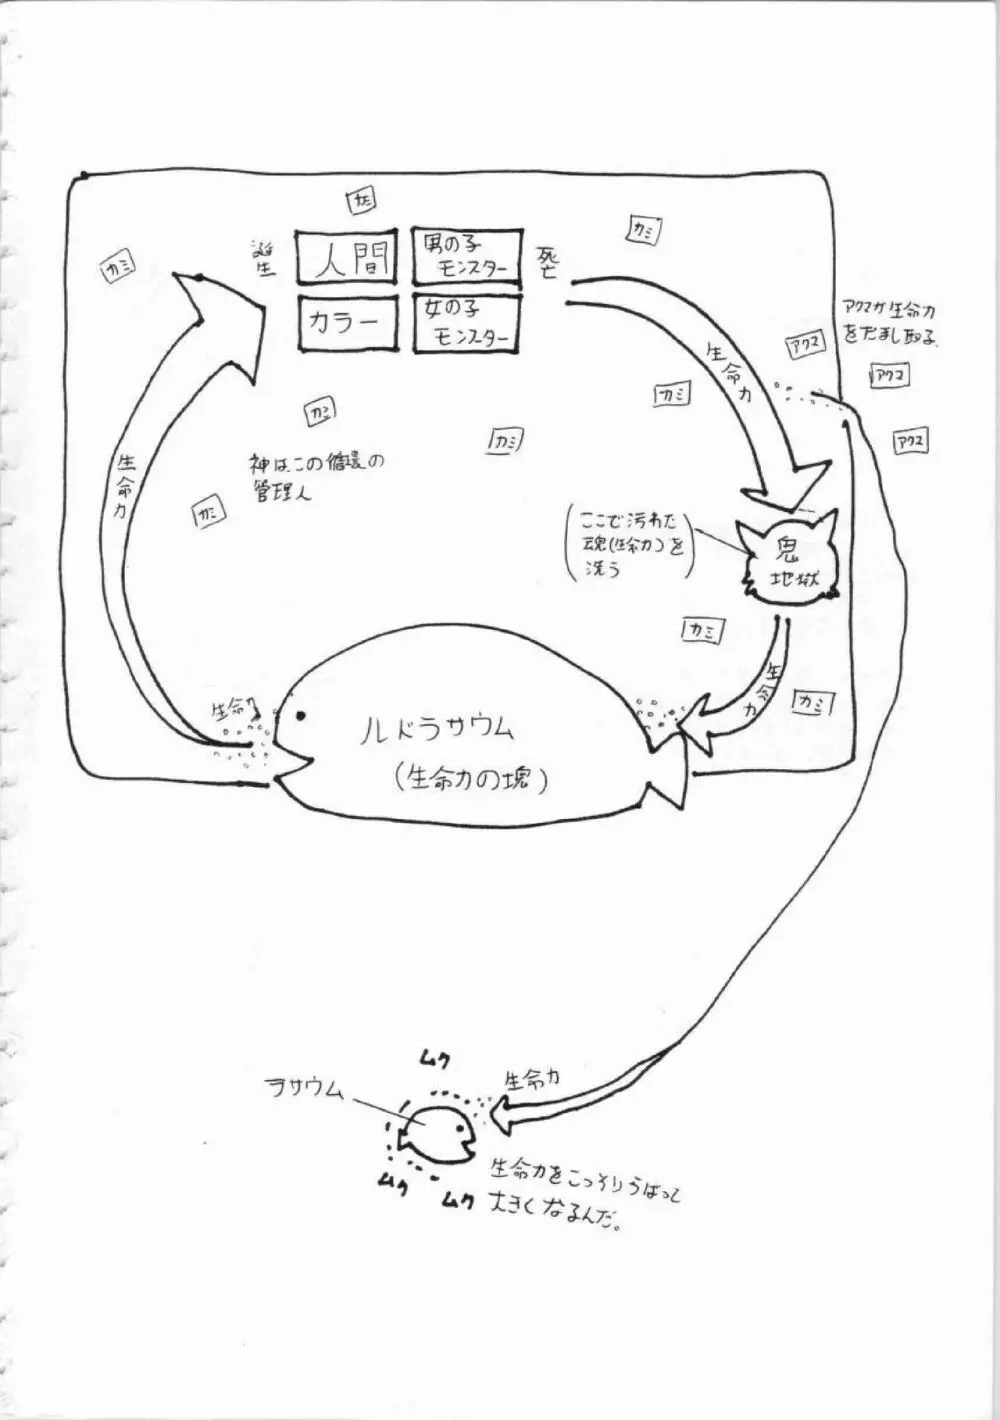 カミ
カミ
カミ
誕生
人間
男の子
モンスター
死亡
カラー
女の子
モンスター
アクマが生命力
をだまし取る.
アクマ
アクマ
アクマ
生命力
カミ
カミ
カミ
生命力
神は、この循環の
管理人
カミ
(ここで汚れた
魂(生命力)を
洗う)
鬼
地獄
カミ
生命力
カミ
生命力
ルドラサウム
(生命力の塊)
ムク
ラサウム
生命力
ムク
ムク
生命力をこっそりうばって
大きくなるんだ。